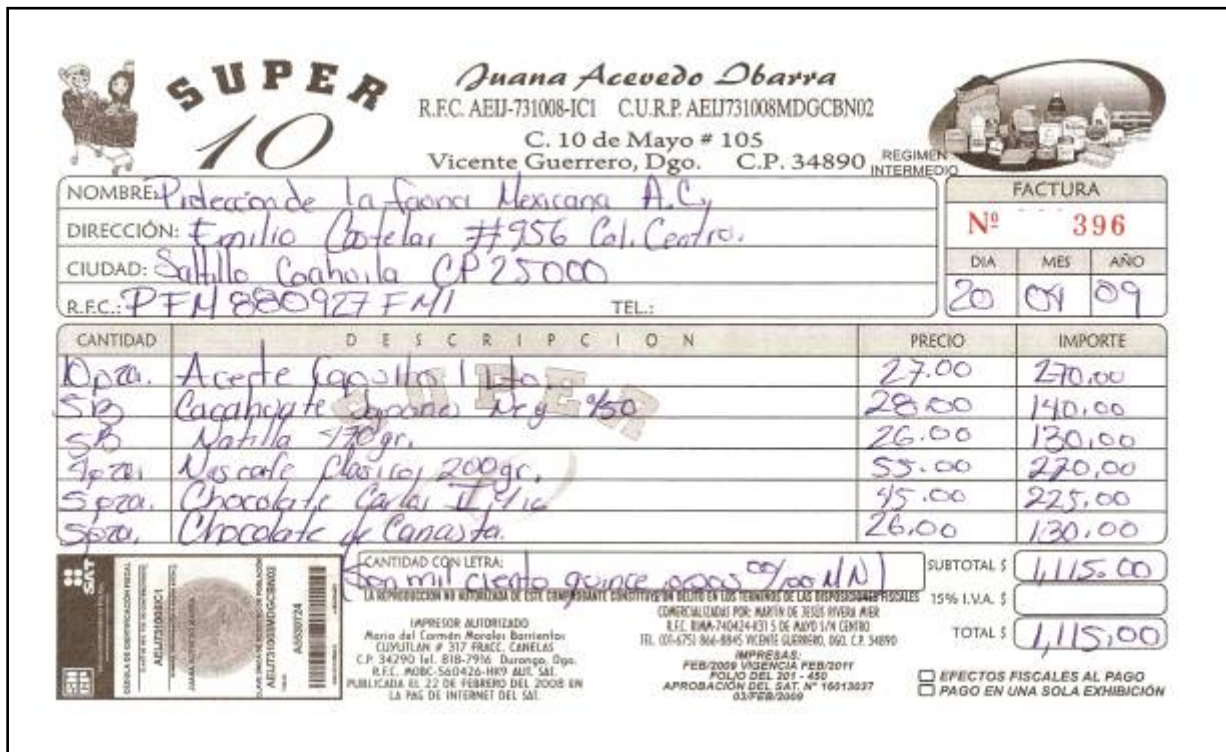 SUPER 10
Juana Acevedo Ibarra
R.F.C. AEIJ-731008-IC1 C.U.R.P. AEIJ731008MDGCBN02
C. 10 de Mayo # 105
Vicente Guerrero, Dgo. C.P. 34890
REGIMEN INTERMEDIO
NOMBRE: Proteccion de la fauna Mexicana A.C.
DIRECCIÓN: Emilio Castelar #956 Col. Centro.
CIUDAD: Saltillo Coahuila CP 25000
R.F.C.: PFM 880927 FM1 TEL.:
FACTURA
Nº 396
DIA MES AÑO
20 09
CANTIDAD DESCRIPCION PRECIO IMPORTE
10 pza. Aceite Capullo 1 Lto. 27.00 270.00
5 B Cacahuate 28.00 140.00
5 B Natilla 170gr. 26.00 130.00
4 pza. Nescafe Clasico, 200gr. 55.00 220.00
5 pza. Chocolate Carlos 45.00 225.00
5 pza. Chocolate de Canasta. 26.00 130.00
SUPER
CANTIDAD CON LETRA:
(son mil ciento quince pesos 00/100 MN)
SUBTOTAL $ 1,115.00
15% I.V.A. $
TOTAL $ 1,115.00
LA REPRODUCCION NO AUTORIZADA DE ESTE COMPROBANTE CONSTITUYE UN DELITO EN LOS TERMINOS DE LAS DISPOSICIONES FISCALES
SAT
CEDULA DE IDENTIFICACION FISCAL
AEIJ731008IC1
JUANA ACEVEDO IBARRA
AEIJ731008MDGCBN02
A5530724
IMPRESOR AUTORIZADO
Maria del Carmen Morales Barrientos
CUYUTLAN # 317 FRACC. CANELAS
C.P. 34290 Tel. 818-7916 Durango, Dgo.
R.F.C. MOBC-560426-HK9 AUT. SAT.
PUBLICADA EL 22 DE FEBRERO DEL 2008 EN
LA PAG DE INTERNET DEL SAT.
COMERCIALIZADAS POR: MARTIN DE JESÚS RIVERA MIER
R.F.C. RIMM-740424-K31 5 DE MAYO S/N CENTRO
TEL. (01-675) 866-8845 VICENTE GUERRERO, DGO. C.P. 34890
IMPRESAS:
FEB/2009 VIGENCIA FEB/2011
FOLIO DEL 201 - 450
APROBACIÓN DEL SAT. Nº 16013037
03/FEB/2009
EFECTOS FISCALES AL PAGO
PAGO EN UNA SOLA EXHIBICIÓN